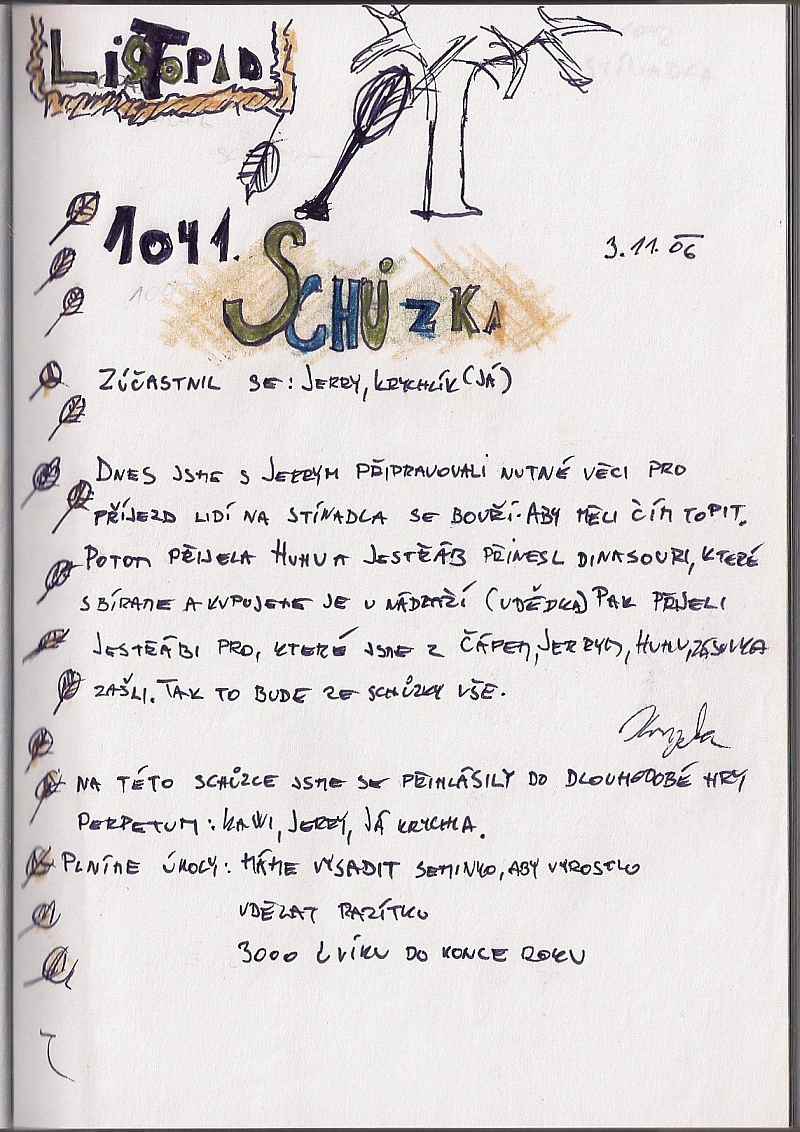 LISTOPAD
1041.
3.11.06
SCHŮZKA
ZÚČASTNIL SE: JERRY, KRYCHLÍK (JÁ)
DNES JSME S JERRYM PŘIPRAVOVALI NUTNÉ VĚCI PRO
PŘÍJEZD LIDÍ NA STÍNADLA SE BOUŘÍ. ABY MĚLI ČÍM TOPIT.
POTOM PŘIJELA HUHU A JESTŘÁB PŘINESL DINASOURI, KTERÉ
SBÍRAME A KUPUJEME JE U NÁDRAŽÍ (UDĚDKA) PAK PŘIJELI
JESTŘÁBI PRO, KTERÉ JSME Z ČÁPEM, JERRYM, HUHU, ZÁSUVKA
ZAŠLI. TAK TO BUDE ZE SCHŮZKY VŠE.
NA TÉTO SCHŮZCE JSME SE PŘIHLÁSILY DO DLOUHODOBÉ HRY
PERPETUM: KAWI, JERRY, JÁ KRYCHLA.
PLNÍME ÚKOLY: MÁME VYSADIT SEMINKO, ABY VYROSTLO
UDĚLAT RAZÍTKO
3000 DO KONCE ROKU